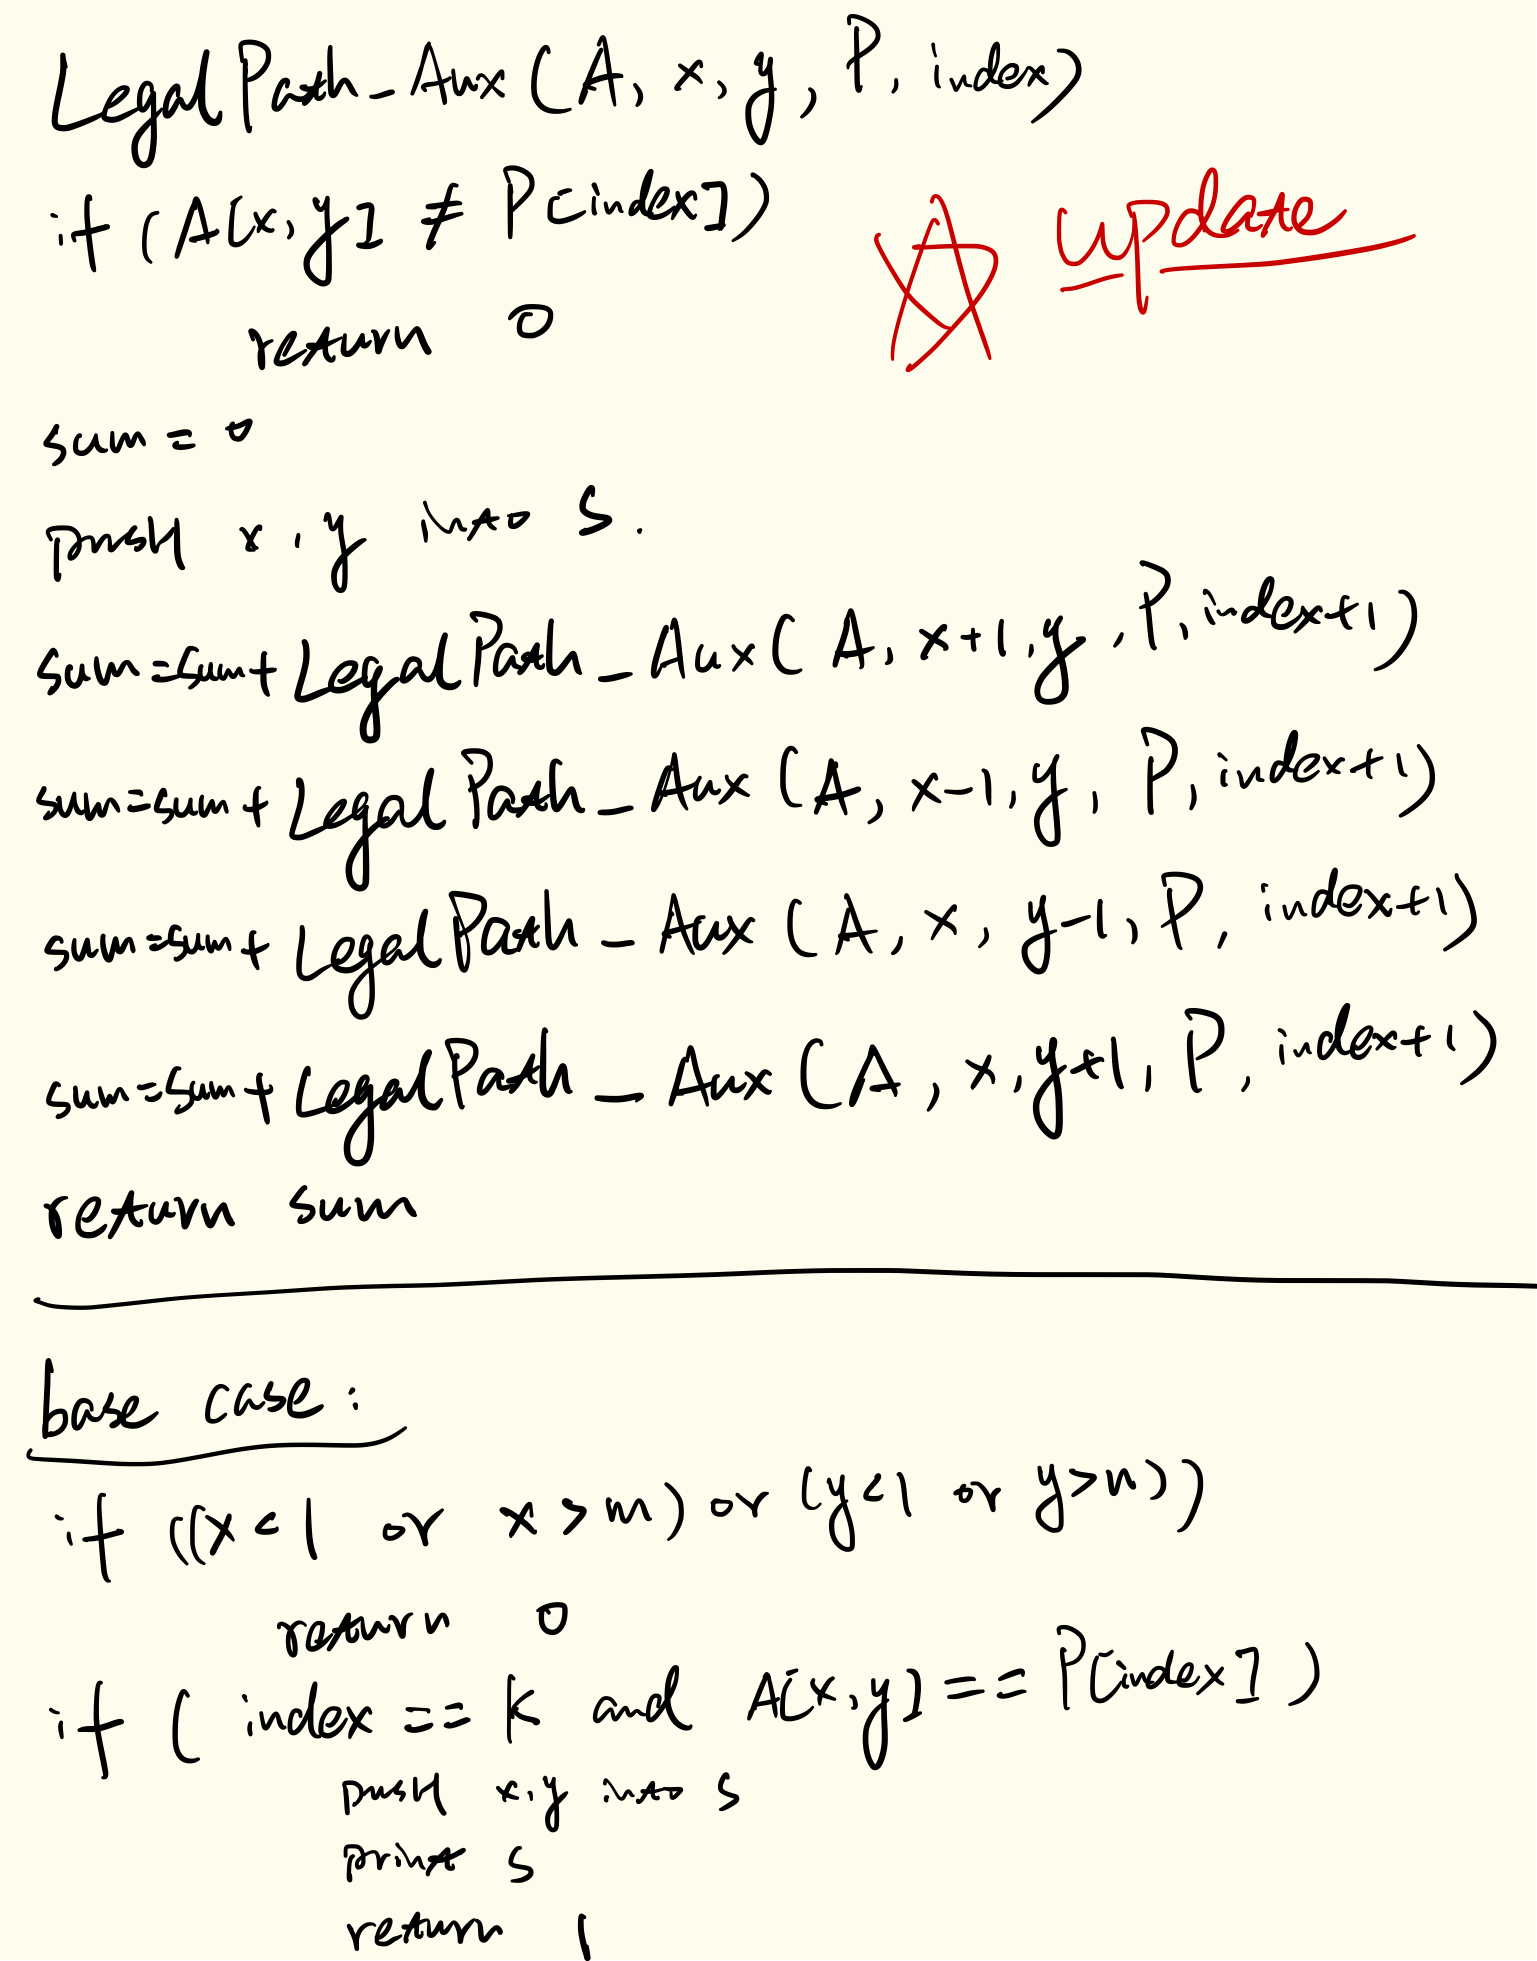 LegalPath_Aux (A, x, y, P, index)
if (A[x, y] ≠ P[index])
update
return 0
sum = 0
push x, y into S.
sum=sum+ LegalPath_Aux (A, x+1, y, P, index+1)
sum=sum+ LegalPath_Aux (A, x-1, y, P, index+1)
sum=sum+ LegalPath_Aux (A, x, y-1, P, index+1)
sum=sum+ LegalPath_Aux (A, x, y+1, P, index+1)
return sum
base case:
if ((x<1 or x>m) or (y<1 or y>n))
return 0
if ( index == k and A[x,y] == P[index] )
push x,y into S
print S
return 1